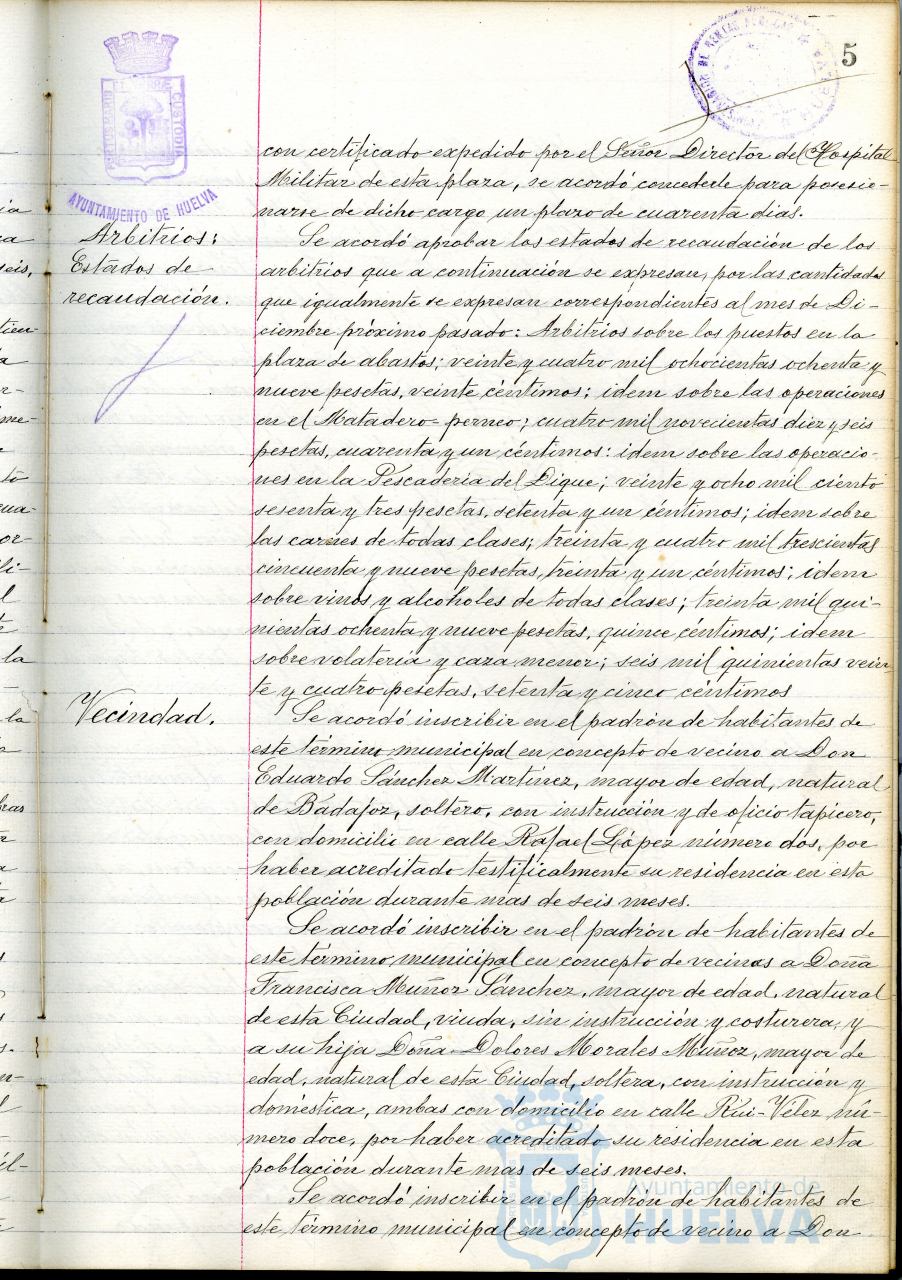 5
AYUNTAMIENTO DE HUELVA
con certificado expedido por el Señor Director del Hospital
Militar de esta plaza, se acordó concederle para posesio-
narse de dicho cargo un plazo de cuarenta dias.
Arbitrios:
Estados de
recaudación.
Se acordó aprobar los estados de recaudación de los
arbitrios que a continuación se expresan, por las cantidades
que igualmente se expresan correspondientes al mes de Di-
ciembre próximo pasado: Arbitrios sobre los puestos en la
plaza de abastos; veinte y cuatro mil ochocientas ochenta y
nueve pesetas, veinte céntimos; idem sobre las operaciones
en el Matadero-perneo; cuatro mil novecientas diez y seis
pesetas, cuarenta y un céntimos: idem sobre las operacio-
nes en la Pescaderia del Dique; veinte y ocho mil ciento
sesenta y tres pesetas, setenta y un céntimos; idem sobre
las carnes de todas clases; treinta y cuatro mil trescientas
cincuenta y nueve pesetas, treinta y un céntimos; idem
sobre vinos y alcoholes de todas clases; treinta mil qui-
nientas ochenta y nueve pesetas, quince céntimos; idem
sobre volateria y caza menor; seis mil quinientas vein-
te y cuatro pesetas, setenta y cinco céntimos
Vecindad.
Se acordó inscribir en el padrón de habitantes de
este término municipal en concepto de vecino a Don
Eduardo Sánchez Martínez, mayor de edad, natural
de Badajoz, soltero, con instrucción y de oficio tapicero,
con domicilio en calle Rafael López número dos, por
haber acreditado testificalmente su residencia en esta
población durante mas de seis meses.
Se acordó inscribir en el padrón de habitantes de
este término municipal en concepto de vecinas a Doña
Francisca Muñoz Sánchez, mayor de edad, natural
de esta Ciudad, viuda, sin instrucción y costurera, y
a su hija Doña Dolores Morales Muñoz, mayor de
edad, natural de esta Ciudad, soltera, con instrucción y
doméstica, ambas con domicilio en calle Rui-Velez nú-
mero doce, por haber acreditado su residencia en esta
población durante mas de seis meses.
Se acordó inscribir en el padrón de habitantes de
este término municipal en concepto de vecino a Don
Ayuntamiento de
HUELVA